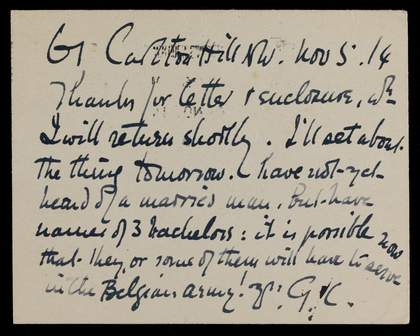 61 Carlton Hill NW. Nov 5. 14
Thanks for letter & enclosure, wh
I will return shortly. I'll set about
the thing tomorrow. I have not yet
heard of a married man, but have
names of 3 bachelors: it is possible now
that they, or some of them will have to serve
in the Belgian army! Yrs G.K.